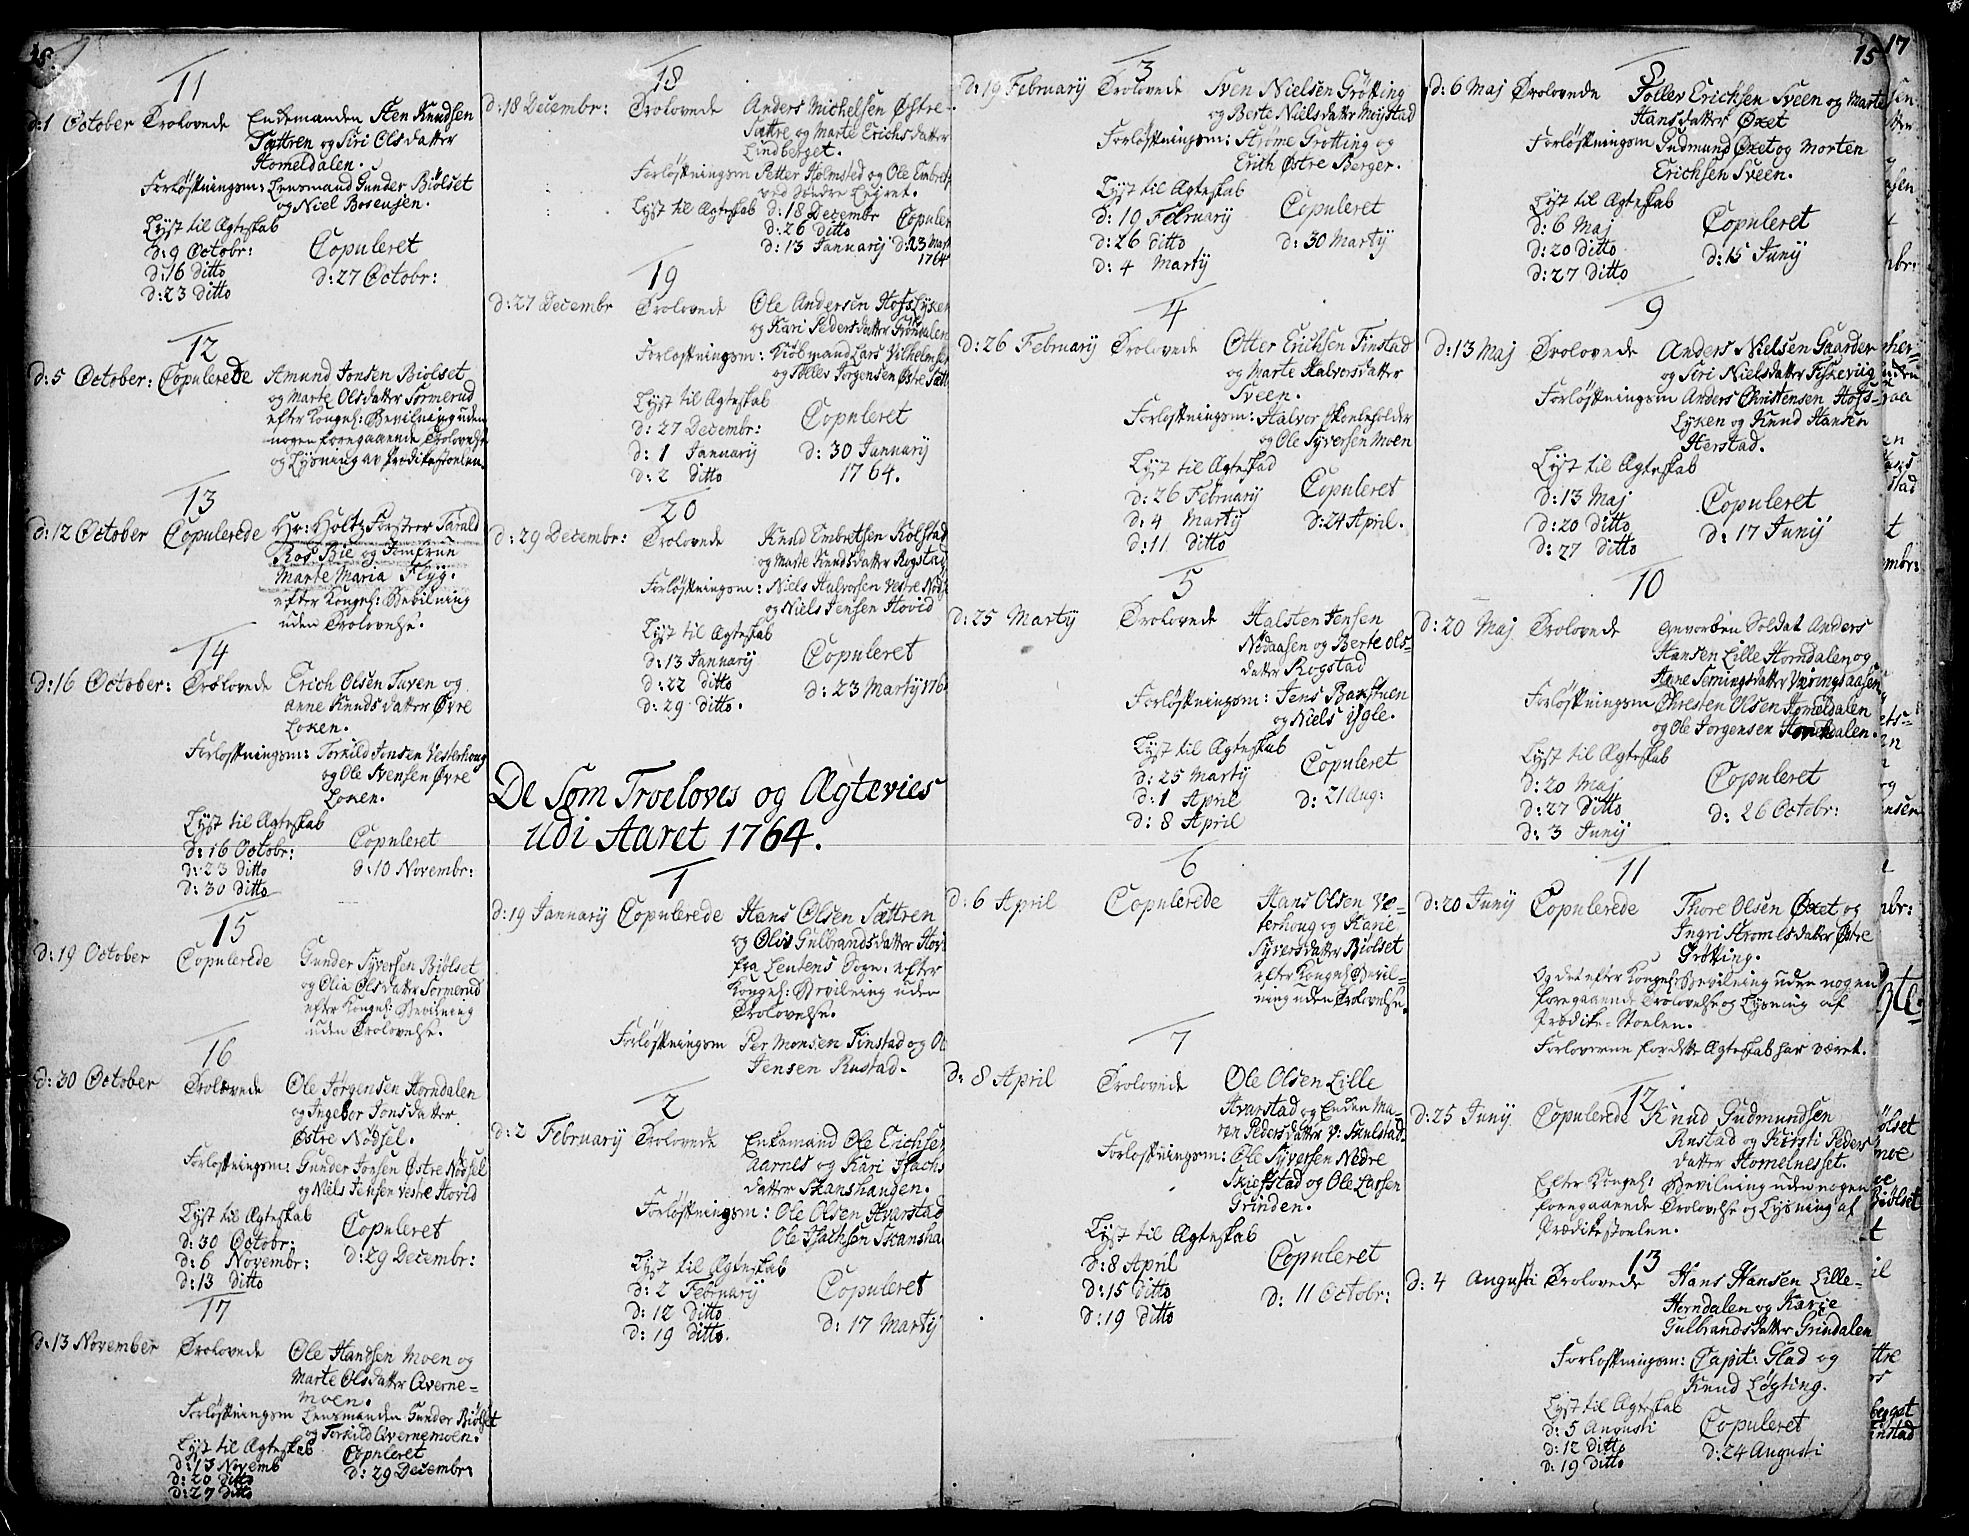 11
d: 1 October Trolovede Enckemanden Sten Knudsen
Sættren og Siri Olsdatter
Homeldalen.
Forløftningsm: Lensmand Gunder Biølset
og Niel Bosensen.
Lyst til Ægteskab
d: 9 Octobr: Copuleret
d: 16 ditto d: 27 Octobr:
d: 23 ditto
12
d: 5 October: Copulerede Amund Jonsen Biølset
og Marte Olsdatter Sormerud
efter Kongel: Bevilning uden
nogen foregaaende Trolovelse
og Lysning av Prædikestoelen.
13
d: 12 October Copulerede Hr: Holtzforster Tarald
Ros Bie og Jomfrue
Marte Maria Flyg.
efter Kongel: Bevilning
uden Trolovelse.
14
d: 16 October: Trolovede Erich Olsen Tuven og
Anne Knudsdatter Øvre
Loken.
Forloftningsm: Torkild Jonsen Vesterhoug
og Ole Svensen Øvre
Loken.
Lyst til Ægteskab
d: 16 Octobr: Copuleret
d: 23 ditto d: 10 Novembr:
d: 30 ditto
15
d: 19 October Copulerede Gunder Syversen Biølset
og Olia Olsdatter Sormerud
efter Kongel: Bevilning
uden Trolovelse.
16
d: 30 October Trolovede Ole Jørgensen Horndalen
og Ingebor Jonsdatter
Østre Nødsel.
Forløftningsm: Gunder Jonsen Østre Nødsel
og Niels Jensen Vestre Hovid
Lyst til Ægteskab
d: 30 Octobr: Copuleret
d: 6 Novembr: d: 29 Decembr:
d: 13 ditto
17
d: 13 November Trolovede Ole Handsen Moen og
Marte Olsdatter Qverne-
moen.
Forløftningsm Lensmanden Gunder Biølset
og Torkild Qvernemoen.
Lyst til Ægteskab Copuleret
d: 13 Novemb d: 29 Decembr:
d: 20 ditto
d: 27 ditto
18
d: 18 Decembr: Trolovede Anders Michelsen Østre-
Sættre og Marte Erichsdatter
Lindberget.
Forløftningsm Petter Holmsted og Ole Embrets
ved Søndre
Lyst til Ægteskab d: 18 Decembr Copuler
d: 26 ditto d: 23 Mart
d: 13 Januarij 1764
19
d: 27 Decembr Trolovede Ole Andersen Hofslyken
og Kari Pedersdatter Grøndalen
Forløftningsm: Kiøbmand Lars Vilhelmsen
og Jørgensen Østre Sætt
Lyst til Ægteskab
d: 27 Decembr: Copuleret
d: 1 Januarij d: 30 Januarij
d: 2 ditto 1764.
20
d: 29 Decembr: Trolovede Knud Embretsen Kolstad
og Marte Knudsdatter Rogstad
Forløftningsm: Niels Halvorsen Vestre Nøds
og Niels Jensen Hovid
Lyst til Ægteskab
d: 13 Januarij Copuleret
d: 22 ditto d: 23 Martij 176
d: 29 ditto.
De Som Troeloves og Ægtevies
udi Aaret 1764.
1
d: 19 Januarij Copulerede Hans Olsen Sættren
og Olis Gulbrandsdatter Hov
fra Leutens Sogn. efter
Kongel: Bevilning uden
Trolovelse.
Forløftningsm Per Monsen Finstad og Ol
Jensen Rustad.
2
d: 2 Februarij Trolovede Enkemand Ole Erichsen
Aarnes og Kari Isachs
datter Skanshaugen.
Forløftningsm: Ole Olsen Hvarstad
Ole Isachsen Skansha
Lyst til Ægteskab
d: 2 Februarij Copuleret
d: 12 ditto d: 17 Martij
d: 19 ditto.
3
d: 19 Februarij Trolovede Sven Nielsen Grøtting
og Berte Nielsdatter Moystad
Forløftningsm: Strøme Grøtting og
Erich Østre Berger.
Lyst til Ægteskab
d: 19 Februarij Copuleret
d: 26 ditto d: 30 Martij
d: 4 Martij
4
d: 26 Februarij Trolovede Otter Erichsen Finstad
og Marte Halvorsdatter
Sveen.
Forløftningsm: Halvor Skonkeholder
og Ole Syversen Moen
Lyst til Ægteskab
d: 26 Februarij Copuleret
d: 4 Martij d: 24 April.
d: 11 ditto
5
d: 25 Martij Trolovede Halsten Jensen
Nødaasen og Berte Ols-
datter Rogstad
Forløftningsm: Jens Bakstuen
og Niels Ygle.
Lyst til Ægteskab
d: 25 Martij Copuleret
d: 1 April d: 21 Aug:
d: 8 April
6
d: 6 April Copulerede Hans Olsen Ve-
terhoug og Hane
Syversdatter Biølset
efter Kongel: Bevil-
ning uden Trolovelse.
7
d: 8 April Trolovede Ole Olsen Lille
Hvarstad og Enken Ma-
ren Pedersdatter V: Skulstad.
Forløftningsm: Ole Syversen Nedre
Skiefstad og Ole Larsen
Grinden.
Lyst til Ægteskab
d: 8 April Copuleret
d: 15 ditto d: 11 Octobr:
d: 19 ditto
15 17
8
d: 6 Maj Trolovede Tollev Erichsen Sveen og Marte
Hansdatter Øxet
Forløftningsm Gudmund Øxet og Morten
Erichsen Sveen.
Lyst til Ægteskab
d: 6 Maj Copuleret
d: 20 ditto d: 15 Junij
d: 27 ditto
9
d: 13 Maj Trolovede Anders Nielsen Gaarder
og Siri Nielsdatter Fiskevig
Forløftningsm Anders Christensen Hofs-
Lyken og Knud Hansen
Herstad.
Lyst til Ægteskab
d: 13 Maj Copuleret
d: 20 ditto d: 17 Junij
d: 27 ditto
10
d: 20 Maj Trolovede Gevorben Soldat Anders
Hansen Lille Horndalen og
Anne Semingsdatter Væringsaasen
Forløftningsm Christen Olsen Homeldalen
og Ole Jorgensen Horndalen.
Lyst til Ægteskab
d: 20 Maj Copuleret
d: 27 ditto d: 26 Octobr:
d: 3 Junij
11
d: 20 Junij Copulerede Thore Olsen Øxet og
Ingri Stromesdatter Østre
Grøtting.
Og det efter Kongel: Bevilning uden nogen
foregaaende Trolovelse og Lysning af
Prædike-Stoelen.
Forloverne for dette Ægteskab har været.
12
d: 25 Junij Copulerede Knud Gudmundsen
Rustad og Kiersti Peders
datter Homelnesset.
Efter Kongel: Bevilning uden nogen
foregaaende Trolovelse og Lysning af
Prædikestoelen.
13
d: 4 Augusti Trolovede Hans Hansen Lille-
Horndalen og Karie
Gulbrandsdatter Grindalen
Forløftningsm: Capit: Glad og
Knud Løgting.
Lyst til Ægteskab
d: 5 Augusti Copuleret
d: 12 ditto d: 24 Augusti
d: 19 ditto